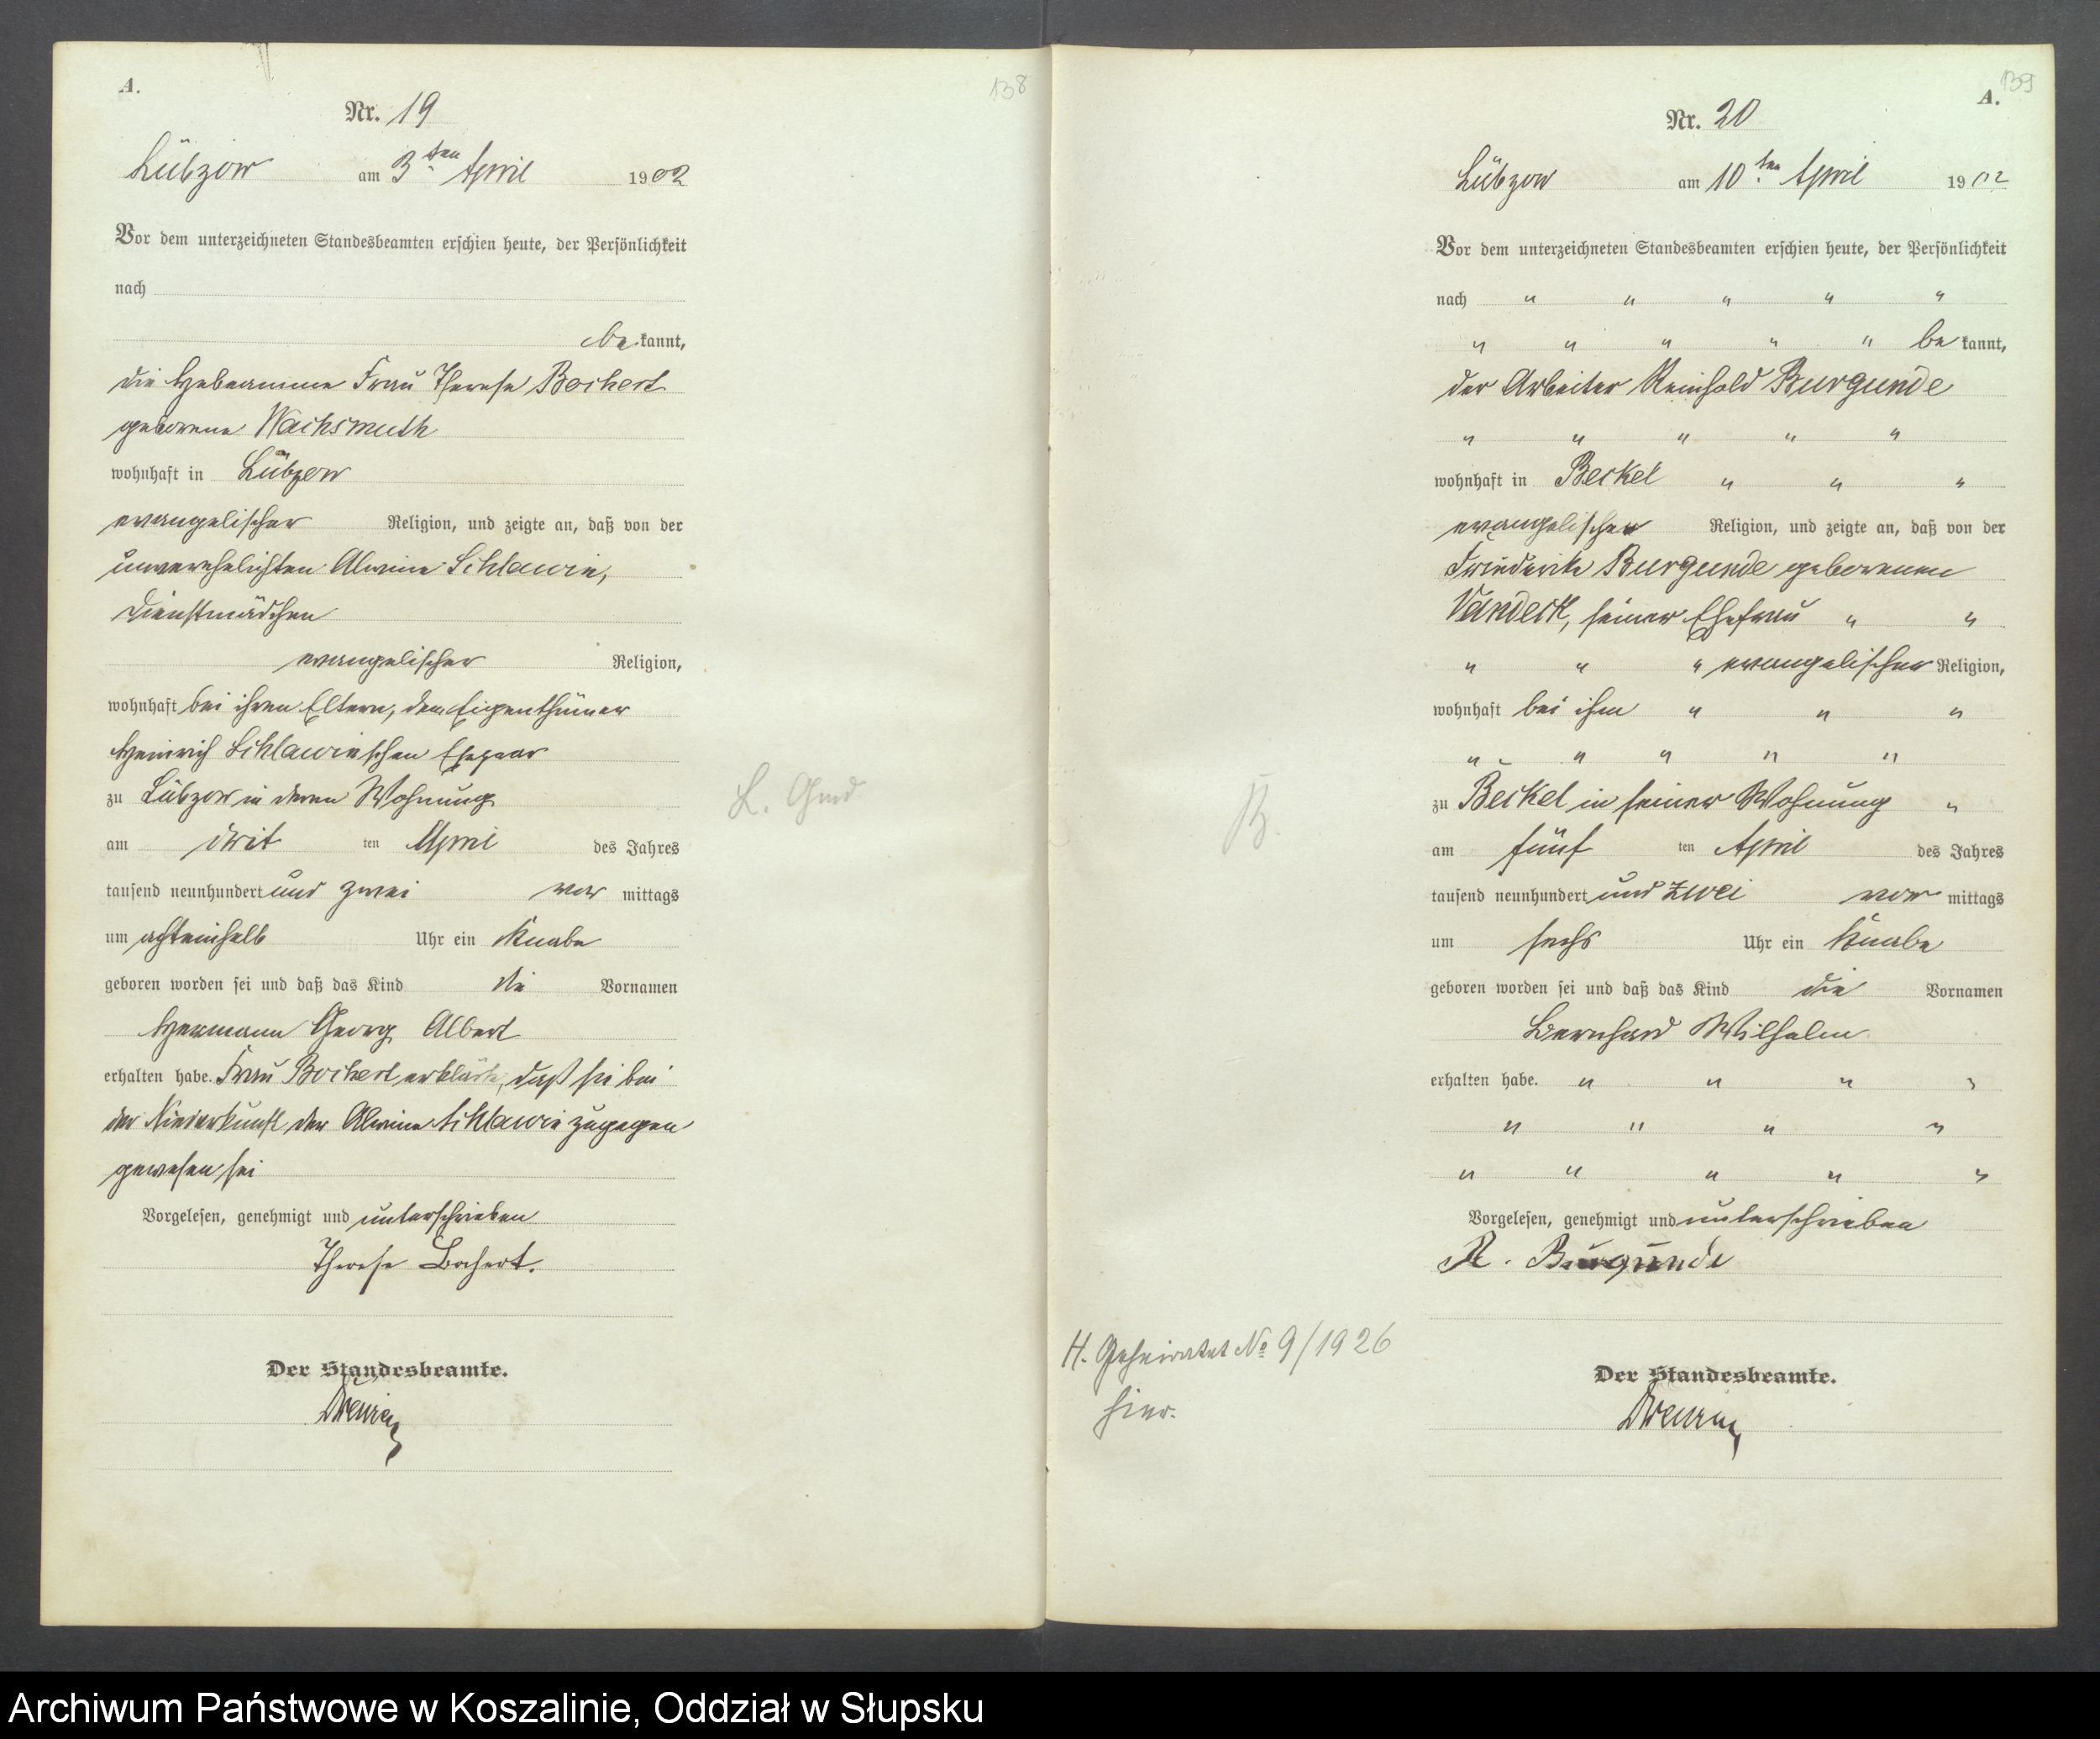 A.
138
Nr. 19
Lübzow am 3ten April 1902
Vor dem unterzeichneten Standesbeamten erschien heute, der Persönlichkeit
nach
be kannt,
die Hebeamme Frau Therese Bochert
geborene Wachsmuth
wohnhaft in Lübzow
evangelischer Religion, und zeigte an, daß von der
unverehelichten Alwine Schlawin,
Dienstmädchen
evangelischer Religion,
wohnhaft bei ihren Eltern, dem Eigenthümer
Heinrich Schlawinschen Ehepaar
zu Lübzow in deren Wohnung
am drit ten April des Jahres
tausend neunhundert und zwei vor mittags
um achteinhalb Uhr ein Knabe
geboren worden sei und daß das Kind die Vornamen
Hermann Georg Albert
erhalten habe. Frau Bochert erklärte, daß sie bei
der Niederkunft der Alwine Schlawin zugegen
gewesen sei
Vorgelesen, genehmigt und unterschrieben
Therese Bochert.
Der Standesbeamte.
L. Gmd
139
A.
Nr. 20
Lübzow am 10ten April 1902
Vor dem unterzeichneten Standesbeamten erschien heute, der Persönlichkeit
nach " " " " "
" " " " " be kannt,
der Arbeiter Reinhold Burgunde
" " " " "
wohnhaft in Beckel " " "
evangelischer Religion, und zeigte an, daß von der
Friederike Burgunde geborenen
Vandeck, seiner Ehefrau " "
" " " evangelischer Religion,
wohnhaft bei ihm " " "
" " " " "
zu Beckel in seiner Wohnung "
am fünf ten April des Jahres
tausend neunhundert und zwei vor mittags
um sechs Uhr ein Knabe
geboren worden sei und daß das Kind die Vornamen
Bernhard Wilhelm
erhalten habe. " " " "
" " " "
" " " " "
Vorgelesen, genehmigt und unterschrieben
R. Burgunde
Der Standesbeamte.
B.
H. Geheiratet No 9/1926
hier.
Archiwum Państwowe w Koszalinie, Oddział w Słupsku